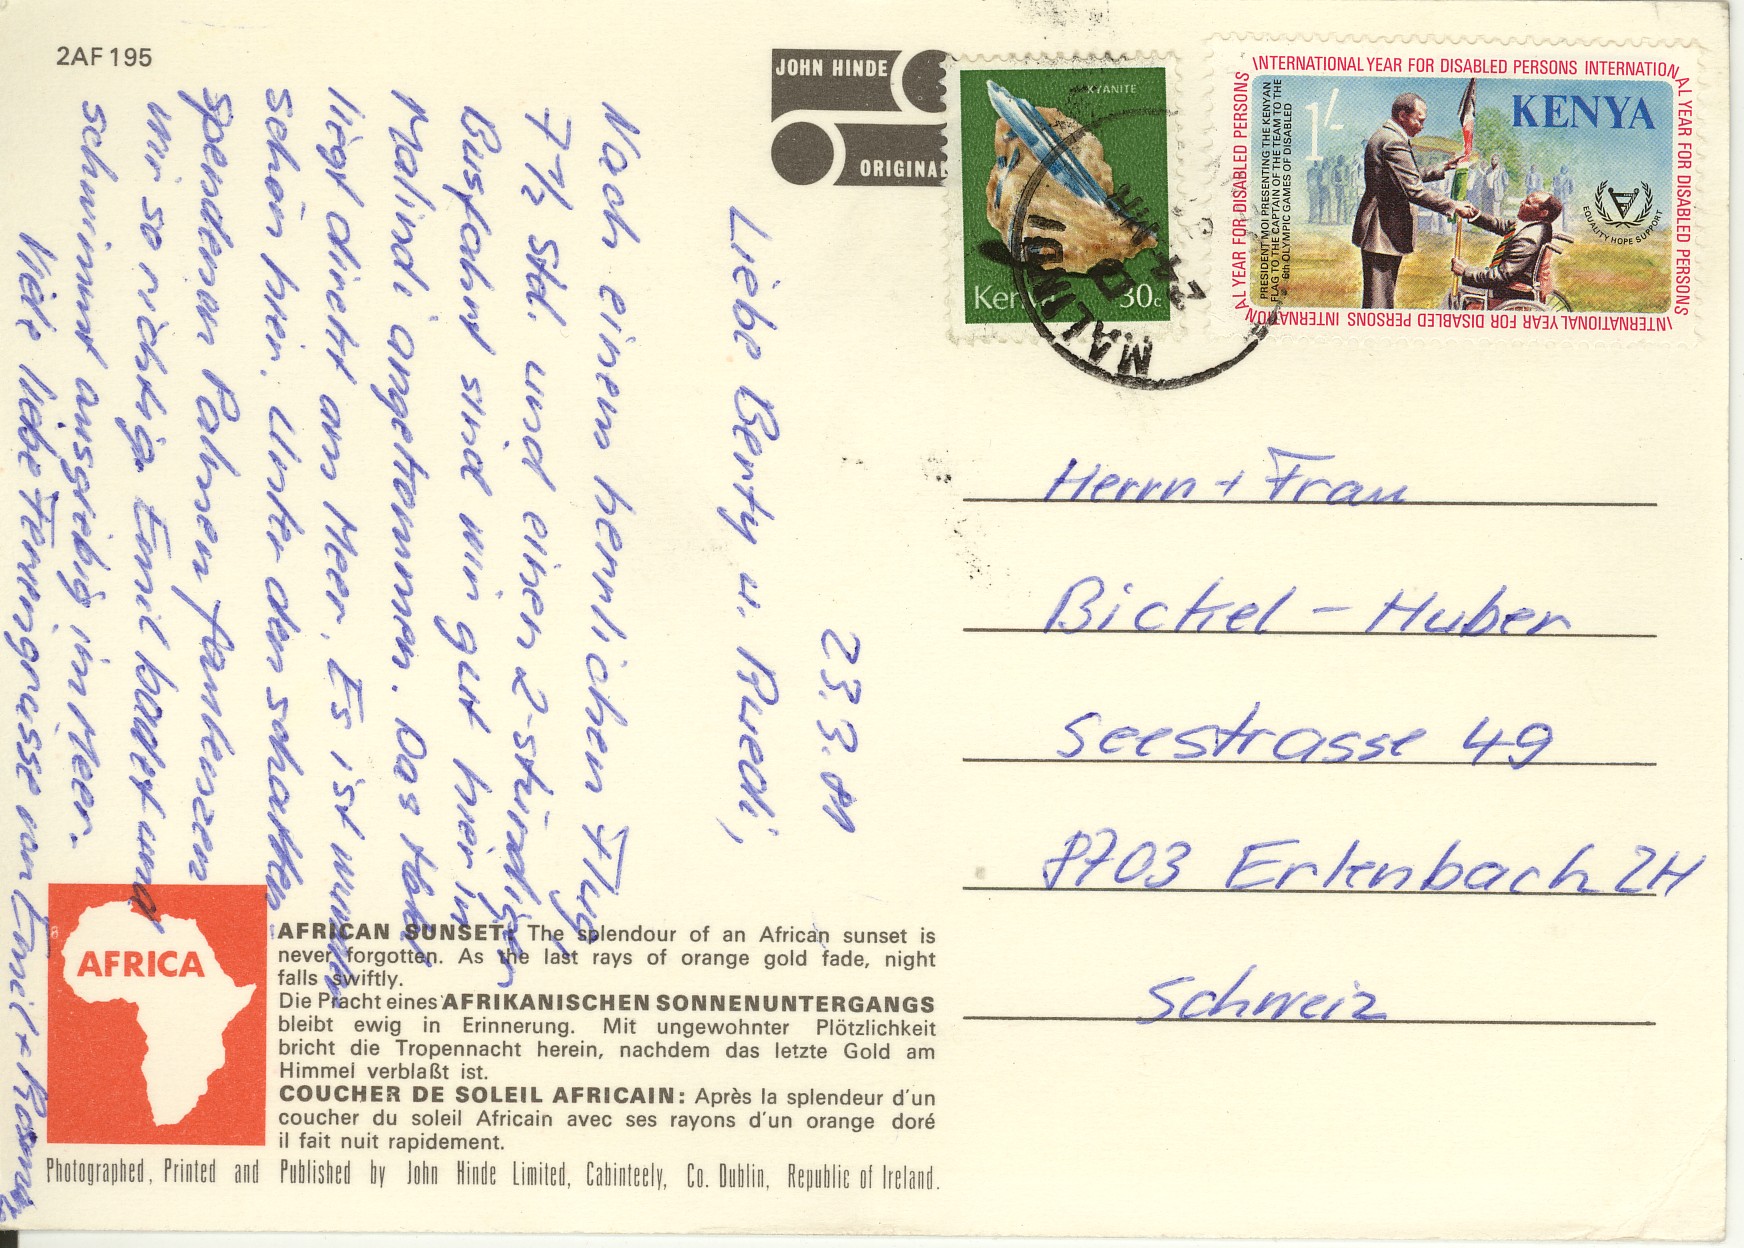 2AF 195
JOHN HINDE
ORIGINAL
KYANITE
Kenya 30c
MALINDI
INTERNATIONAL YEAR FOR DISABLED PERSONS INTERNATIONAL YEAR FOR DISABLED PERSONS
INTERNATIONAL YEAR FOR DISABLED PERSONS INTERNATIONAL YEAR FOR DISABLED PERSONS
1/-
KENYA
PRESIDENT MOI PRESENTING THE KENYAN
FLAG TO THE CAPTAIN OF THE TEAM TO THE
6th OLYMPIC GAMES OF DISABLED
EQUALITY HOPE SUPPORT
23.3.81
Liebe Berty u. Ruedi,
Nach einem herrlichen Flug
7 1/2 Std. und einer 2-stündigen
Busfahrt sind wir gut hier in
Malindi angekommen. Das Hotel
liegt direkt am Meer. Es ist wunder
schön hier. Unter den schatten
spendenen Palmen faulenzen
wir so richtig. Emil badet und
schwimmt ausgiebig im Meer.
Viele liebe Feriengrüsse von Emil +
Herrn + Frau
Bickel - Huber
Seestrasse 49
8703 Erlenbach ZH
Schweiz
AFRICA
AFRICAN SUNSET: The splendour of an African sunset is
never forgotten. As the last rays of orange gold fade, night
falls swiftly.
Die Pracht eines AFRIKANISCHEN SONNENUNTERGANGS
bleibt ewig in Erinnerung. Mit ungewohnter Plötzlichkeit
bricht die Tropennacht herein, nachdem das letzte Gold am
Himmel verblaßt ist.
COUCHER DE SOLEIL AFRICAIN: Après la splendeur d'un
coucher du soleil Africain avec ses rayons d'un orange doré
il fait nuit rapidement.
Photographed, Printed and Published by John Hinde Limited, Cabinteely, Co. Dublin, Republic of Ireland.